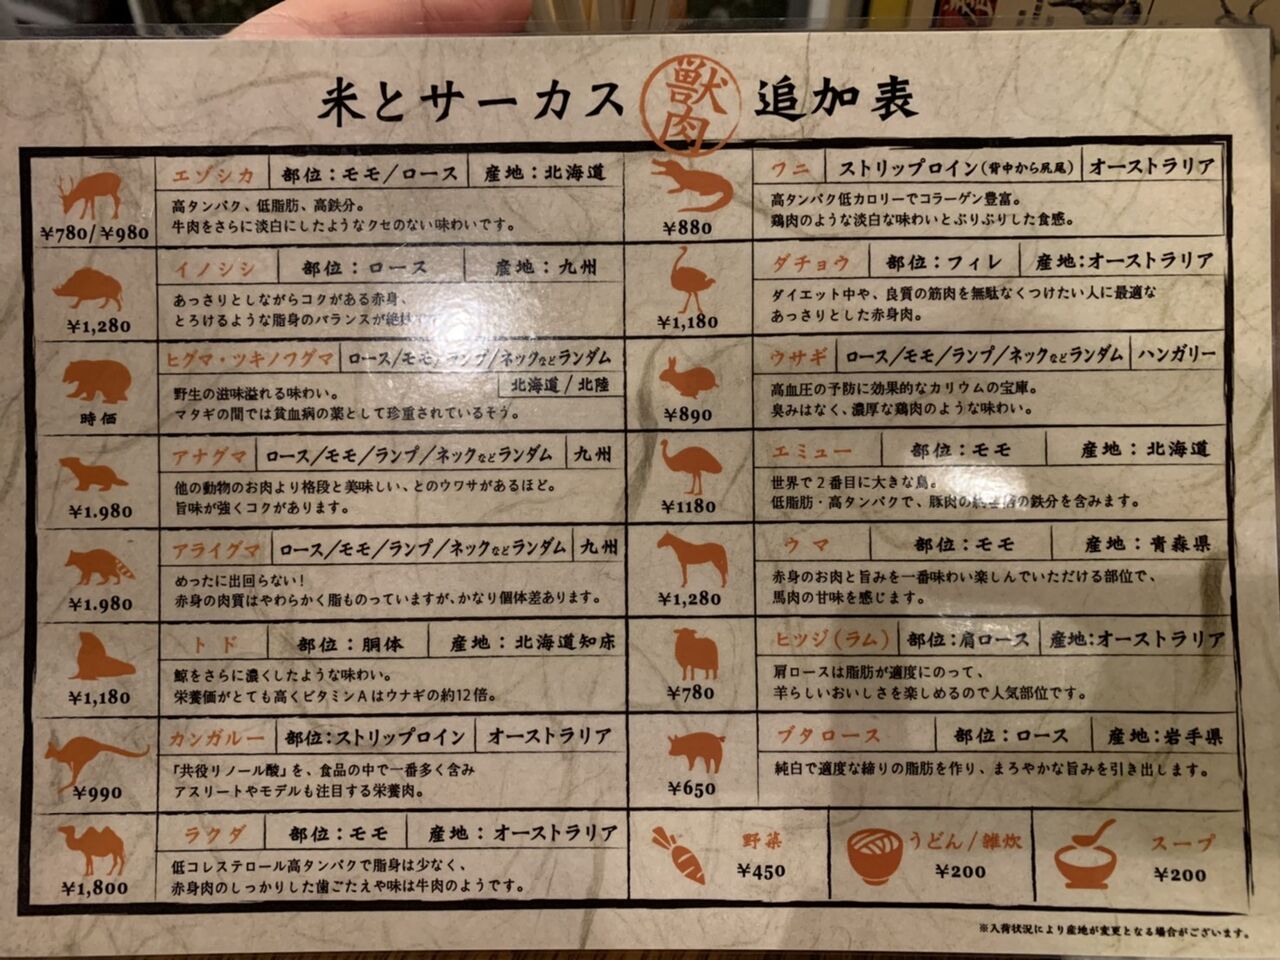 米とサーカス 獣肉 追加表
エゾシカ 部位：モモ/ロース 産地：北海道
高タンパク、低脂肪、高鉄分。
牛肉をさらに淡白にしたようなクセのない味わいです。
¥780/¥980
イノシシ 部位：ロース 産地：九州
あっさりとしながらコクがある赤身、
とろけるような脂身のバランスが絶妙
¥1,280
ヒグマ・ツキノワグマ ロース/モモ/ランプ/ネックなどランダム
北海道 / 北陸
野生の滋味溢れる味わい。
マタギの間では貧血病の薬として珍重されているそう。
時価
アナグマ ロース/モモ/ランプ/ネックなどランダム 九州
他の動物のお肉より格段と美味しい、とのウワサがあるほど。
旨味が強くコクがあります。
¥1.980
アライグマ ロース/モモ/ランプ/ネックなどランダム 九州
めったに出回らない！
赤身の肉質はやわらかく脂ものっていますが、かなり個体差あります。
¥1.980
トド 部位：胴体 産地：北海道知床
鯨をさらに濃くしたような味わい。
栄養価がとても高くビタミンAはウナギの約12倍。
¥1,180
カンガルー 部位：ストリップロイン オーストラリア
「共役リノール酸」を、食品の中で一番多く含み
アスリートやモデルも注目する栄養肉。
¥990
ラクダ 部位：モモ 産地：オーストラリア
低コレステロール高タンパクで脂身は少なく、
赤身肉のしっかりした歯ごたえや味は牛肉のようです。
¥1,800
ワニ ストリップロイン（背中から尻尾） オーストラリア
高タンパク低カロリーでコラーゲン豊富。
鶏肉のような淡白な味わいとぷりぷりした食感。
¥880
ダチョウ 部位：フィレ 産地：オーストラリア
ダイエット中や、良質の筋肉を無駄なくつけたい人に最適な
あっさりとした赤身肉。
¥1,180
ウサギ ロース/モモ/ランプ/ネックなどランダム ハンガリー
高血圧の予防に効果的なカリウムの宝庫。
臭みはなく、濃厚な鶏肉のような味わい。
¥890
エミュー 部位：モモ 産地：北海道
世界で2番目に大きな鳥。
低脂肪・高タンパクで、豚肉の の鉄分を含みます。
¥1180
ウマ 部位：モモ 産地：青森県
赤身のお肉と旨みを一番味わい楽しんでいただける部位で、
馬肉の甘味を感じます。
¥1,280
ヒツジ（ラム） 部位：肩ロース 産地：オーストラリア
肩ロースは脂肪が適度にのって、
羊らしいおいしさを楽しめるので人気部位です。
¥780
ブタロース 部位：ロース 産地：岩手県
純白で適度な締りの脂肪を作り、まろやかな旨みを引き出します。
¥650
野菜
¥450
うどん/雑炊
¥200
スープ
¥200
※入荷状況により産地が変更となる場合がございます。